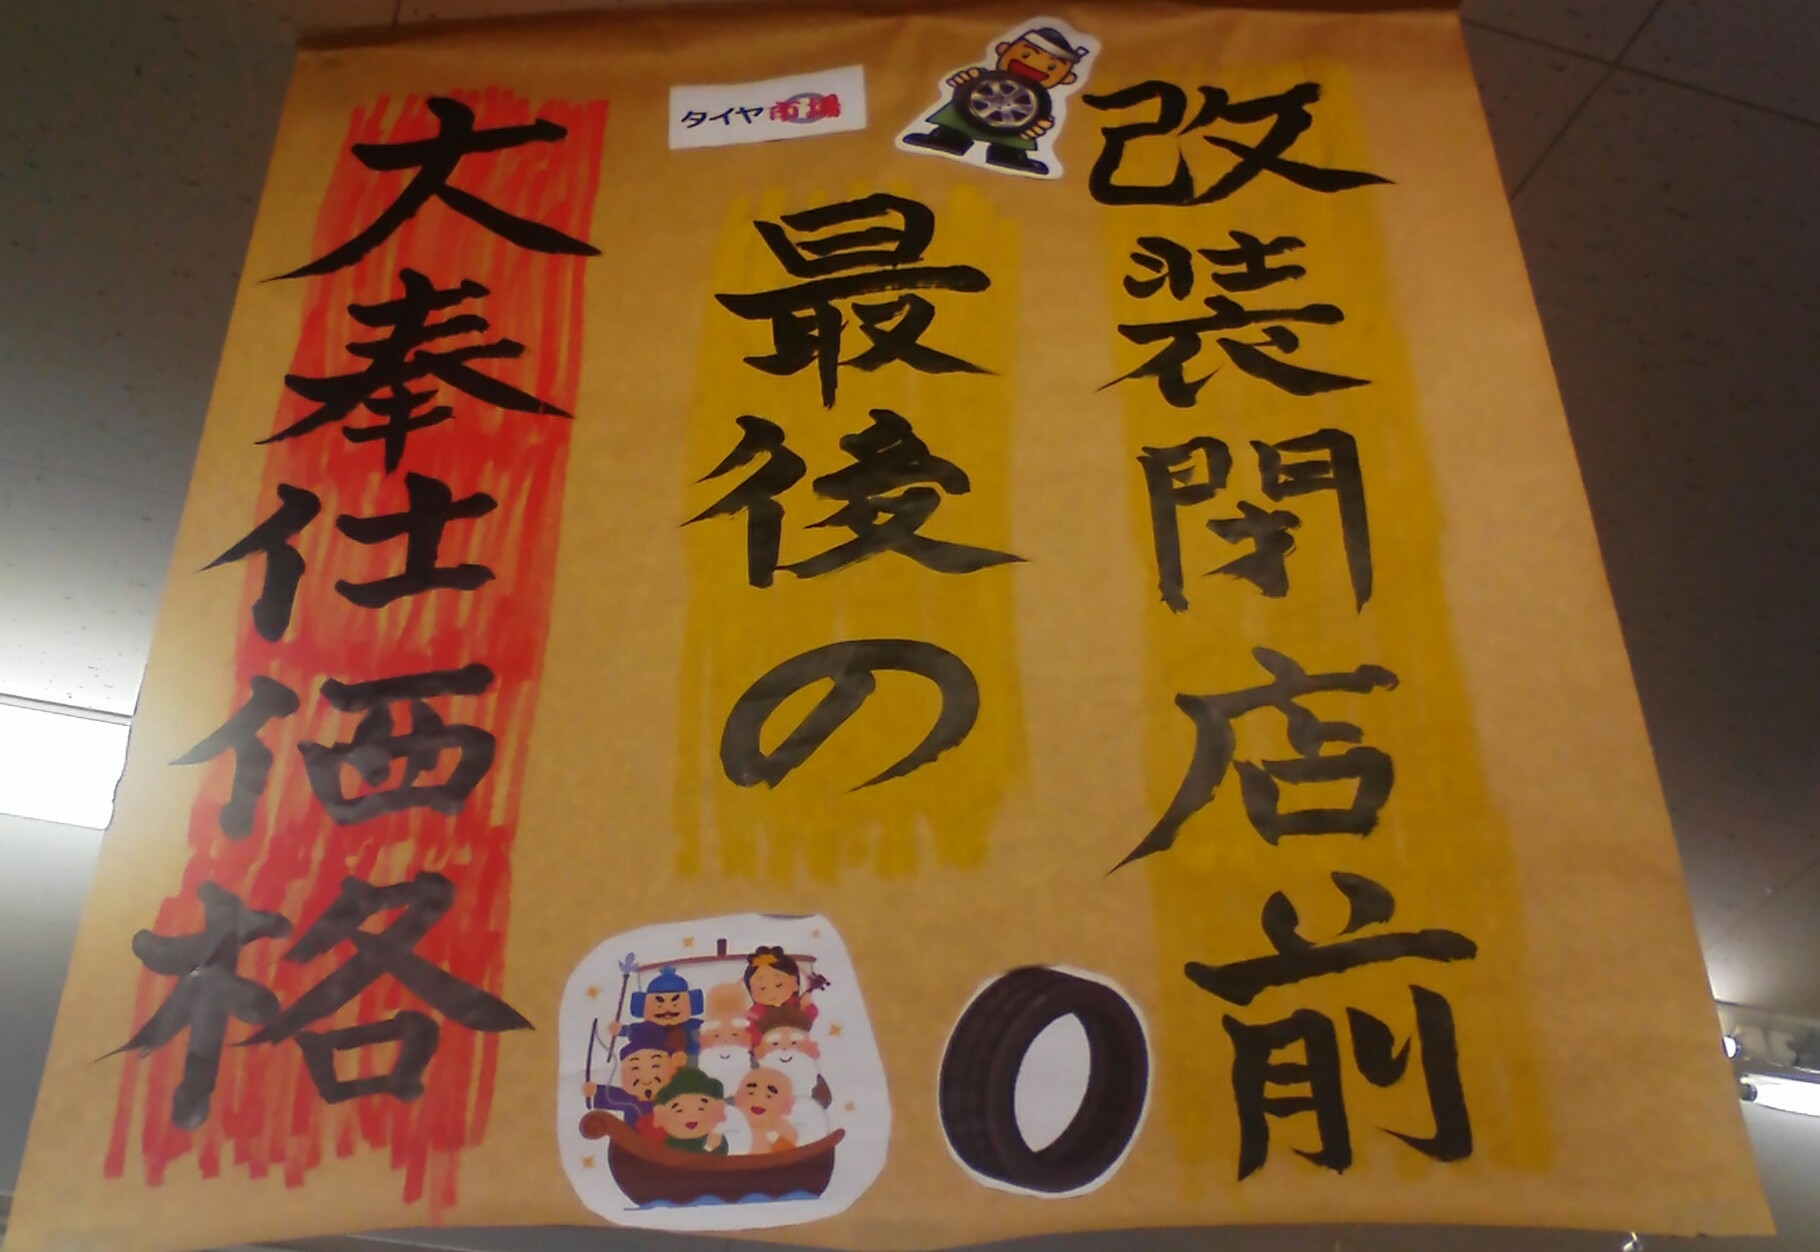 改装閉店前
最後の
大奉仕価格
タイヤ市場